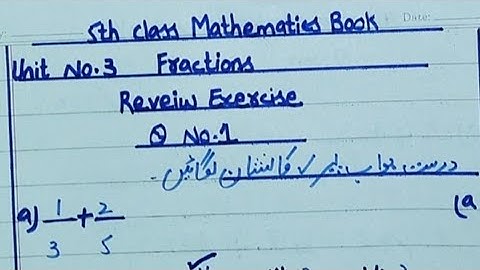 Date:
5th class Mathematics Book
Unit No.3 Fractions
Reveiw Exercise
Q No.1
درست جواب پر ✓ کا نشان لگائیں۔
a) 1/3 + 2/5 (a